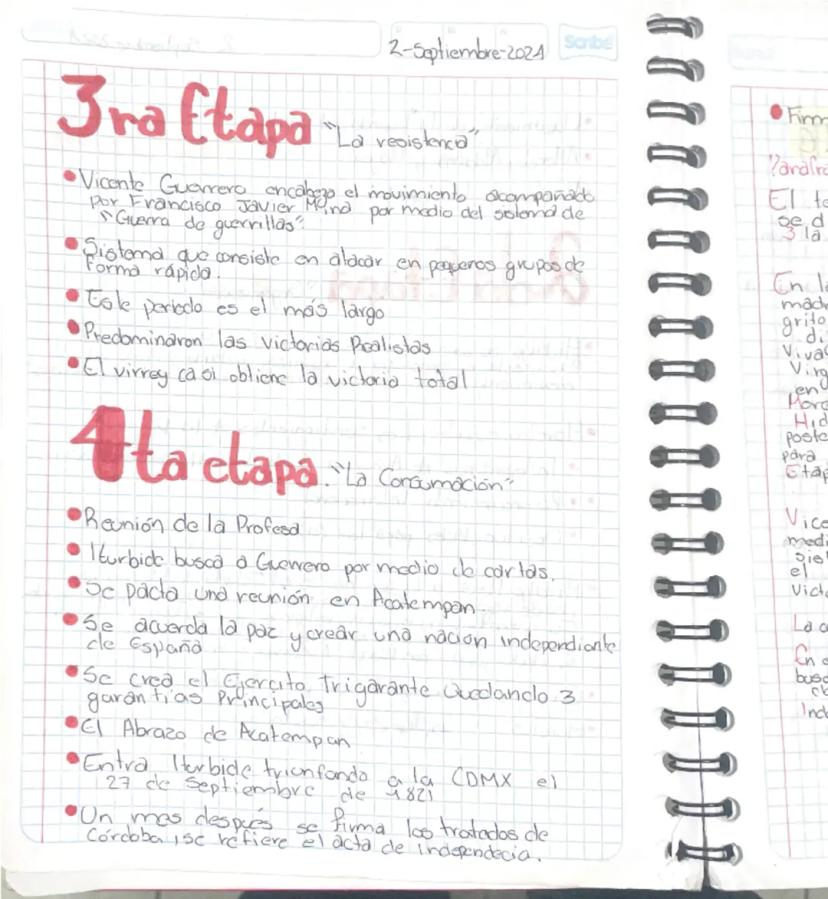 2-Septiembre-2024
Scribe
3ra Etapa "La resistencia"
Vicente Guerrero encabeza el movimiento acompañado
por Francisco Javier Mina por medio del sistema de
"Guerra de guerrillas".
Sistema que consiste en atacar en pequeños grupos de
forma rápida.
Este periodo es el más largo
Predominaron las victorias Realistas
El virrey casi obtiene la victoria total
4ta etapa. "La Consumación"
Reunión de la Profesa
Iturbide busca a Guerrero por medio de cartas.
Se pacta una reunión en Acatempan.
Se acuerda la paz y crear una nación independiente
de España
Se crea el Ejercito Trigarante Quedando 3
garantías Principales
El Abrazo de Acatempan
Entra Iturbide triunfando a la CDMX el
27 de Septiembre de 1821
Un mes después se firma los tratados de
Córdoba, se refiere el acta de indepedecia.
Firm
El te
se d
3 la
En la
mad
grito
di
Viva
Virg
en
Moro
Hid
poste
para
Etap
Vice
medi
sist
el
Victo
La c
En
busc
Ind